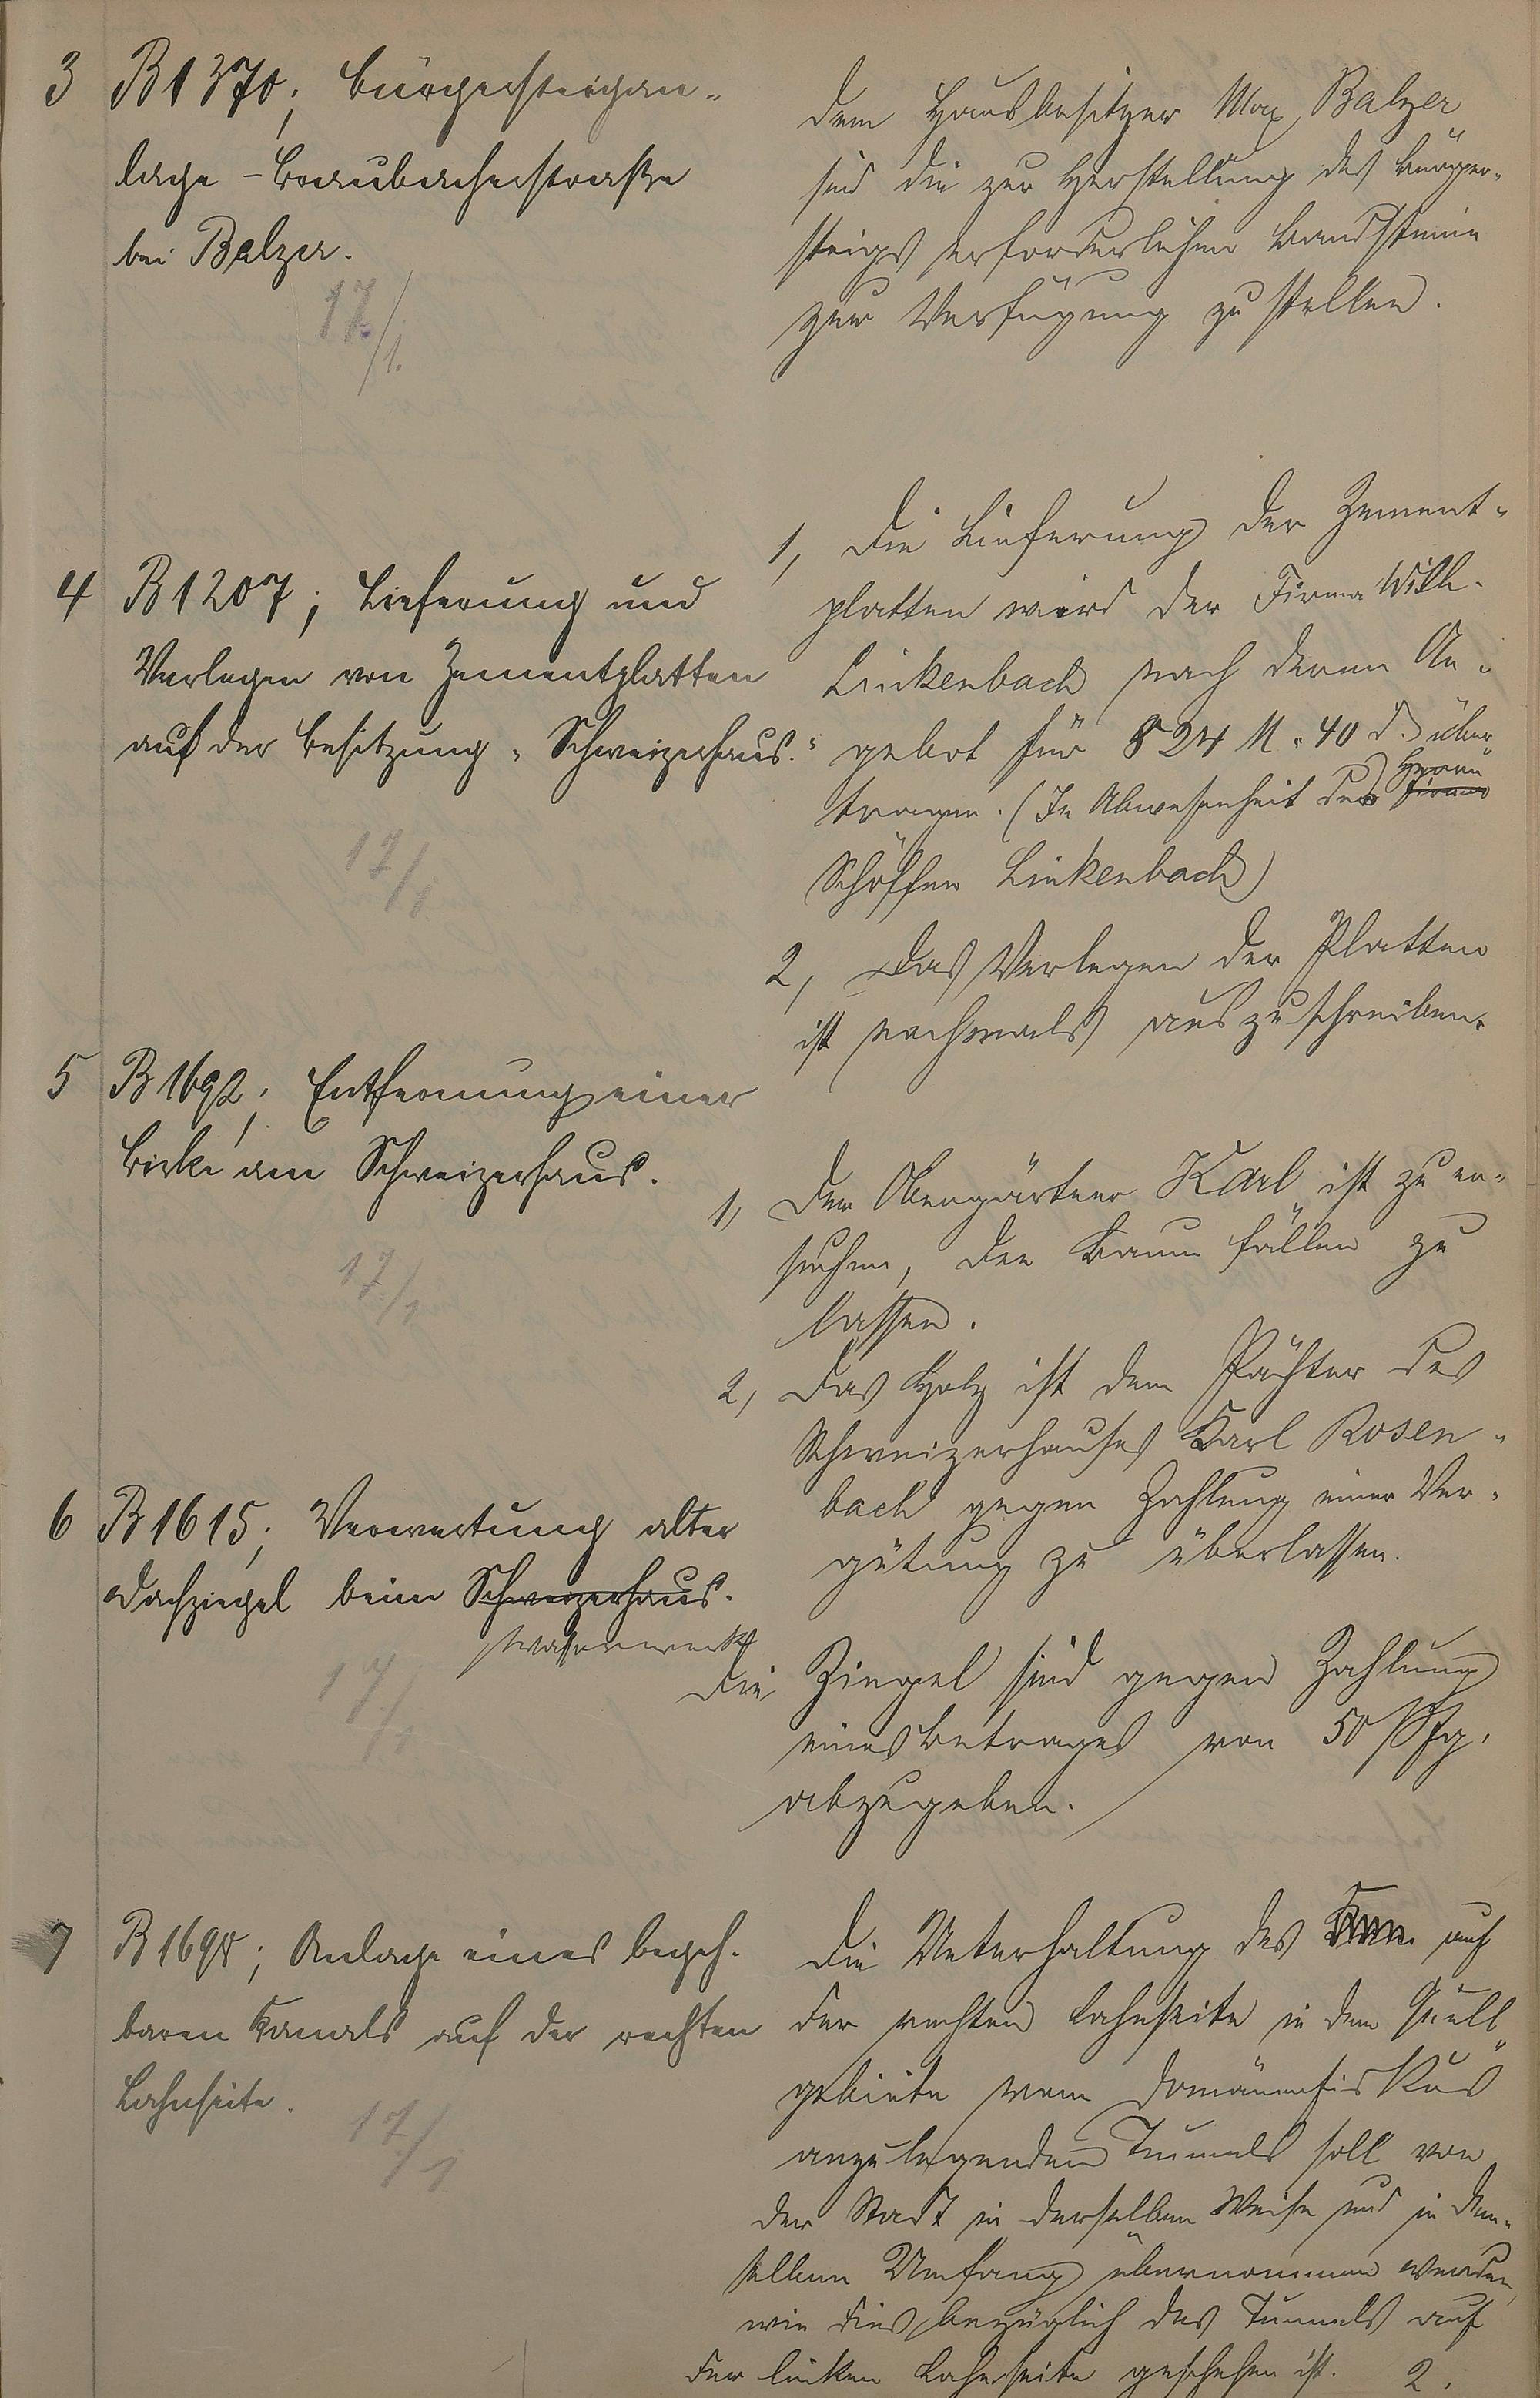 3 B 1370; Bürgersteigan-
lage - Braubacherstraße
bei Balzer.
17/1.
Dem Hausbesitzer Max Balzer
sind die zur Herstellung des Bürger-
steigs erforderlichen Bandsteine
zur Verfügung zu stellen.
4 B 1207; Lieferung und
Verlegen von Zementplatten
auf der Besitzung „Schweizerhaus.“
17/1
1, Die Lieferung der Zement-
platten wird der Firma Wilh.
Linkenbach nach deren An-
gebot für 824 M. 40 d. über-
tragen. (In Abwesenheit des Herrn
Schöffen Linkenbach)
2, Das Verlegen der Platten
ist nochmals auszuschreiben.
5 B 1692; Entfernung einer
Birke am Schweizerhaus.
17/1
1, Der Obergärtner Karl ist zu er-
suchen, den Baum fällen zu
lassen.
2, Das Holz ist dem Pächter des
Schweizerhauses Karl Rosen-
bach gegen Zahlung einer Ver-
gütung zu überlassen.
6 B 1615; Verwertung alter
Dachziegel beim Schweizerhaus.
Wasserwerk
17/1
Die Ziegel sind gegen Zahlung
eines Betrages von 50 Pfg.
abzugeben.
7 B 1698; Anlage eines begeh-
baren Kanals auf der rechten
Lahnseite.
17/1
Die Unterhaltung des auf
der rechten Lahnseite in dem Quell-
gebiete vom Domänenfiskus
anzulegenden Tunnels soll von
der Stadt in derselben Weise und in dem-
selben Umfang übernommen werden,
wie dies bezüglich des Tunnels auf
der linken Lahnseite geschehen ist. 2.